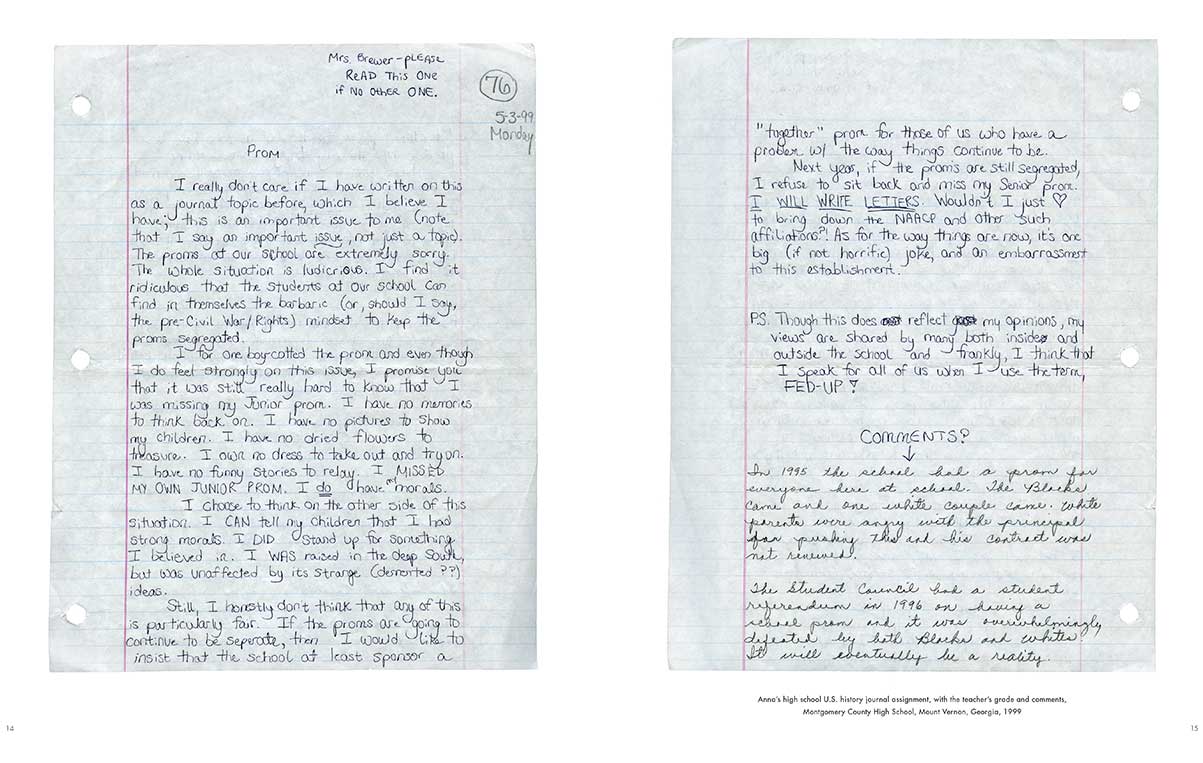 Mrs. Brewer - PLEASE
READ This ONE
if NO OTHER ONE.
76
5-3-99
Monday
Prom
I really don't care if I have written on this
as a journal topic before, which I believe I
have; this is an important issue to me (note
that I say an important issue, not just a topic).
The proms at our school are extremely sorry.
The whole situation is ludicrious. I find it
ridiculous that the students at our school can
find in themselves the barbaric (or, should I say,
the pre-Civil War/Rights) mindset to keep the
proms segregated.
I for one boy-cotted the prom and even though
I do feel strongly on this issue, I promise you
that it was still really hard to know that I
was missing my Junior prom. I have no memories
to think back on. I have no pictures to show
my children. I have no dried flowers to
treasure. I own no dress to take out and try on.
I have no funny stories to relay. I MISSED
MY OWN JUNIOR PROM. I do have my morals.
I choose to think on the other side of this
situation. I CAN tell my children that I had
strong morals. I DID stand up for something
I believed in. I WAS raised in the deep South,
but was unaffected by its strange (demented ??)
ideas.
Still, I honestly don't think that any of this
is particularly fair. If the proms are going to
continue to be seperate, then I would like to
insist that the school at least sponsor a
14
"together" prom for those of us who have a
problem w/ the way things continue to be.
Next year, if the proms are still segregated,
I refuse to sit back and miss my Senior prom.
I WILL WRITE LETTERS. Wouldn't I just ♡
to bring down the NAACP and other such
affiliations?! As for the way things are now, it's one
big (if not horrific) joke, and an embarrassment
to this establishment.
PS. Though this does reflect my opinions, my
views are shared by many both inside and
outside the school and frankly, I think that
I speak for all of us when I use the term,
FED-UP!
COMMENTS?
In 1995 the school had a prom for
everyone here at school. The Blacks
came and one white couple came. White
parents were angry with the principal
for pushing this and his contract was
not renewed.
The Student Council had a student
referendum in 1996 on having a
school prom and it was overwhelmingly
defeated by both Blacks and whites.
It will eventually be a reality.
Anna's high school U.S. history journal assignment, with the teacher's grade and comments,
Montgomery County High School, Mount Vernon, Georgia, 1999
15